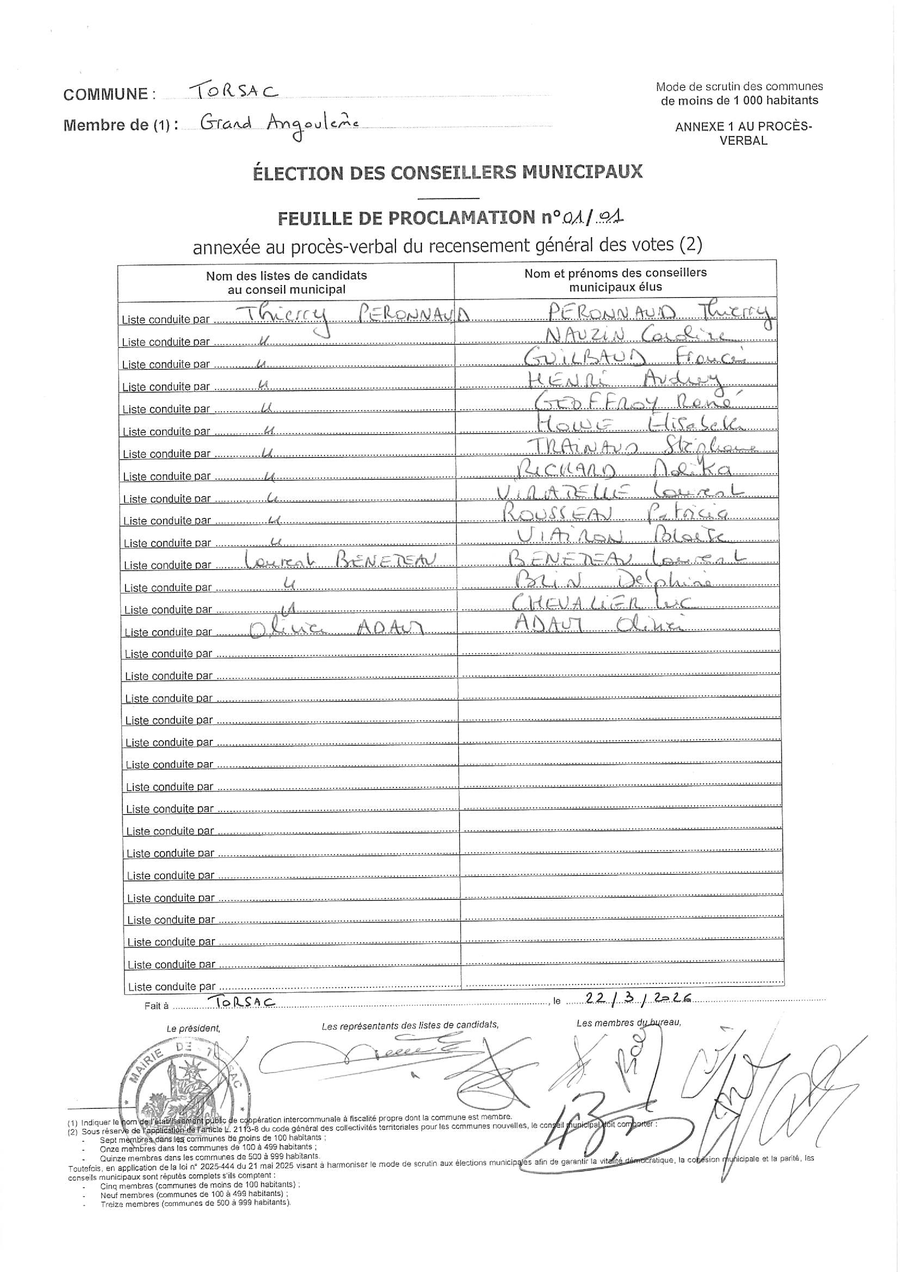 COMMUNE : TORSAC
Mode de scrutin des communes
de moins de 1 000 habitants
Membre de (1) : Grand Angoulême
ANNEXE 1 AU PROCÈS-
VERBAL
ÉLECTION DES CONSEILLERS MUNICIPAUX
FEUILLE DE PROCLAMATION n° 01/01
annexée au procès-verbal du recensement général des votes (2)
Nom des listes de candidats
au conseil municipal
Nom et prénoms des conseillers
municipaux élus
Liste conduite par Thierry PERONNAUD PERONNAUD Thierry
Liste conduite par " NAUZIN Caroline
Liste conduite par " GUILBAUD Francis
Liste conduite par " HENRI Audrey
Liste conduite par " GEOFFROY René
Liste conduite par " Elisabeth
Liste conduite par " TRAINAUD Stéphane
Liste conduite par " RICHARD
Liste conduite par " VIRATELLE Laurent
Liste conduite par " ROUSSEAU Patricia
Liste conduite par "
Liste conduite par Laurent BENETEAU BENETEAU Laurent
Liste conduite par " BRIN Delphine
Liste conduite par " CHEVALIER Luc
Liste conduite par Olivier
Liste conduite par
Liste conduite par
Liste conduite par
Liste conduite par
Liste conduite par
Liste conduite par
Liste conduite par
Liste conduite par
Liste conduite par
Liste conduite par
Liste conduite par
Liste conduite par
Liste conduite par
Liste conduite par
Liste conduite par
Liste conduite par
Fait à TORSAC, le 22/3/2026
Le président,
Les représentants des listes de candidats,
Les membres du bureau,
MAIRIE DE TORSAC
(1) Indiquer le nom de l'établissement public de coopération intercommunale à fiscalité propre dont la commune est membre.
(2) Sous réserve de l'application de l'article L. 2113-8 du code général des collectivités territoriales pour les communes nouvelles, le conseil municipal doit comporter :
- Sept membres dans les communes de moins de 100 habitants ;
- Onze membres dans les communes de 100 à 499 habitants ;
- Quinze membres dans les communes de 500 à 999 habitants.
Toutefois, en application de la loi n° 2025-444 du 21 mai 2025 visant à harmoniser le mode de scrutin aux élections municipales afin de garantir la vitalité démocratique, la cohésion municipale et la parité, les
conseils municipaux sont réputés complets s'ils comptent :
- Cinq membres (communes de moins de 100 habitants) ;
- Neuf membres (communes de 100 à 499 habitants) ;
- Treize membres (communes de 500 à 999 habitants).